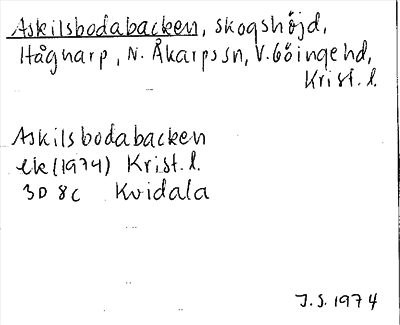 Askilsbodabacken, skogshöjd,
Hågnarp, N. Åkarps sn, V. Göinge hd,
Krist. l.
Askilsbodabacken
ek (1974) Krist. l.
3D 8c Kvidala
J.S. 1974